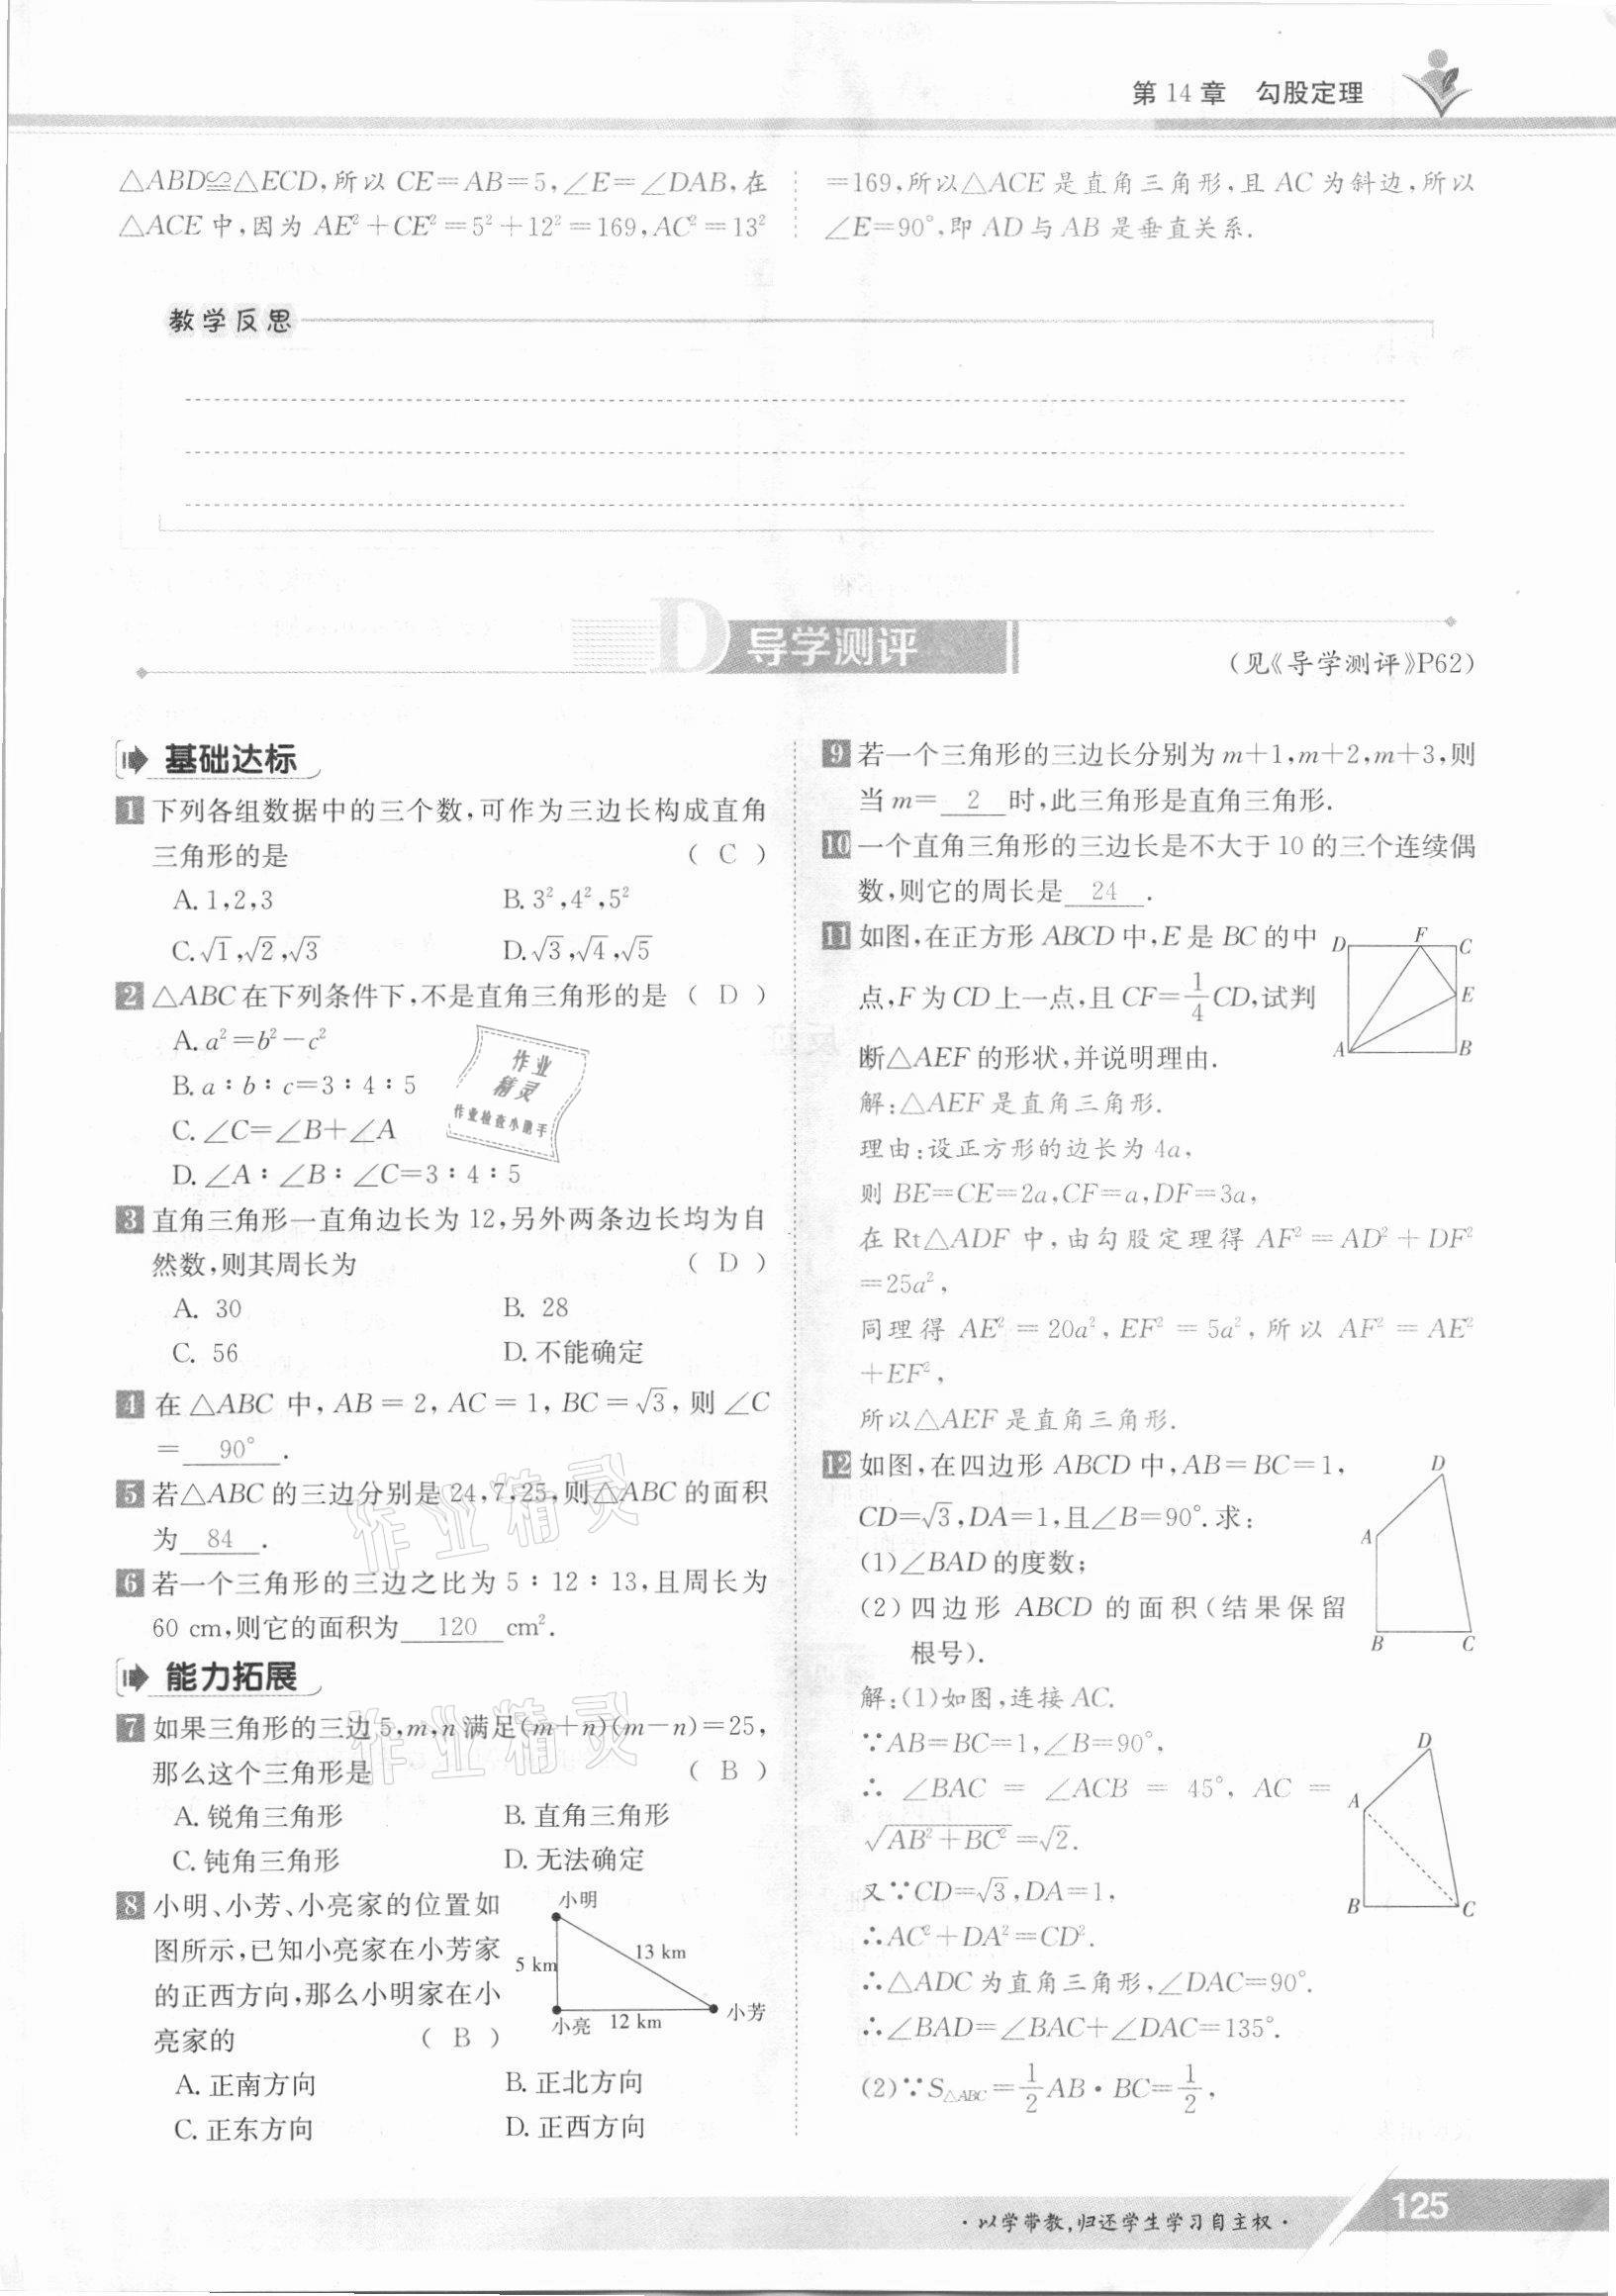 第 14 章 勾股定理
△ABD≌△ECD,所以 CE=AB=5,∠E=∠DAB,在
△ACE 中,因为 AE²+CE²=5²+12²=169,AC²=13²
=169,所以△ACE 是直角三角形,且 AC 为斜边,所以
∠E=90°,即 AD 与 AB 是垂直关系.
教学反思
D 导学测评
(见《导学测评》P62)
基础达标
1 下列各组数据中的三个数,可作为三边长构成直角
三角形的是 ( C )
A. 1,2,3 B. 3²,4²,5²
C. √1,√2,√3 D. √3,√4,√5
2 △ABC 在下列条件下,不是直角三角形的是 ( D )
A. a²=b²-c²
B. a∶b∶c=3∶4∶5
C. ∠C=∠B+∠A
D. ∠A∶∠B∶∠C=3∶4∶5
3 直角三角形一直角边长为 12,另外两条边长均为自
然数,则其周长为 ( D )
A. 30 B. 28
C. 56 D. 不能确定
4 在 △ABC 中, AB = 2, AC = 1, BC = √3, 则 ∠C
= 90° .
5 若△ABC 的三边分别是 24,7,25,则△ABC 的面积
为 84 .
6 若一个三角形的三边之比为 5∶12∶13,且周长为
60 cm,则它的面积为 120 cm².
能力拓展
7 如果三角形的三边 5,m,n 满足(m+n)(m-n)=25,
那么这个三角形是 ( B )
A. 锐角三角形 B. 直角三角形
C. 钝角三角形 D. 无法确定
8 小明、小芳、小亮家的位置如
图所示,已知小亮家在小芳家
的正西方向,那么小明家在小
亮家的 ( B )
小明
5 km
13 km
小亮
12 km
小芳
A. 正南方向 B. 正北方向
C. 正东方向 D. 正西方向
9 若一个三角形的三边长分别为 m+1,m+2,m+3,则
当 m= 2 时,此三角形是直角三角形.
10 一个直角三角形的三边长是不大于 10 的三个连续偶
数,则它的周长是 24 .
11 如图,在正方形 ABCD 中,E 是 BC 的中
点,F 为 CD 上一点,且 CF=1/4CD,试判
断△AEF 的形状,并说明理由.
D F C
E
A B
解:△AEF 是直角三角形.
理由:设正方形的边长为 4a,
则 BE=CE=2a,CF=a,DF=3a,
在 Rt△ADF 中,由勾股定理得 AF² = AD² + DF²
=25a²,
同理得 AE² = 20a², EF² = 5a², 所以 AF² = AE²
+EF²,
所以△AEF 是直角三角形.
12 如图,在四边形 ABCD 中,AB=BC=1,
CD=√3,DA=1,且∠B=90°. 求:
(1)∠BAD 的度数;
(2)四边形 ABCD 的面积(结果保留
根号).
D
A
B C
解:(1)如图,连接 AC.
∵AB=BC=1,∠B=90°,
∴ ∠BAC = ∠ACB = 45°, AC =
√(AB²+BC²)=√2.
又∵CD=√3,DA=1,
∴AC²+DA²=CD².
∴△ADC 为直角三角形,∠DAC=90°.
∴∠BAD=∠BAC+∠DAC=135°.
(2)∵S△ABC=1/2AB·BC=1/2,
D
A
B C
作业
精灵
作业检查小助手
作业精灵
作业精灵
·以学带教,归还学生学习自主权·
125